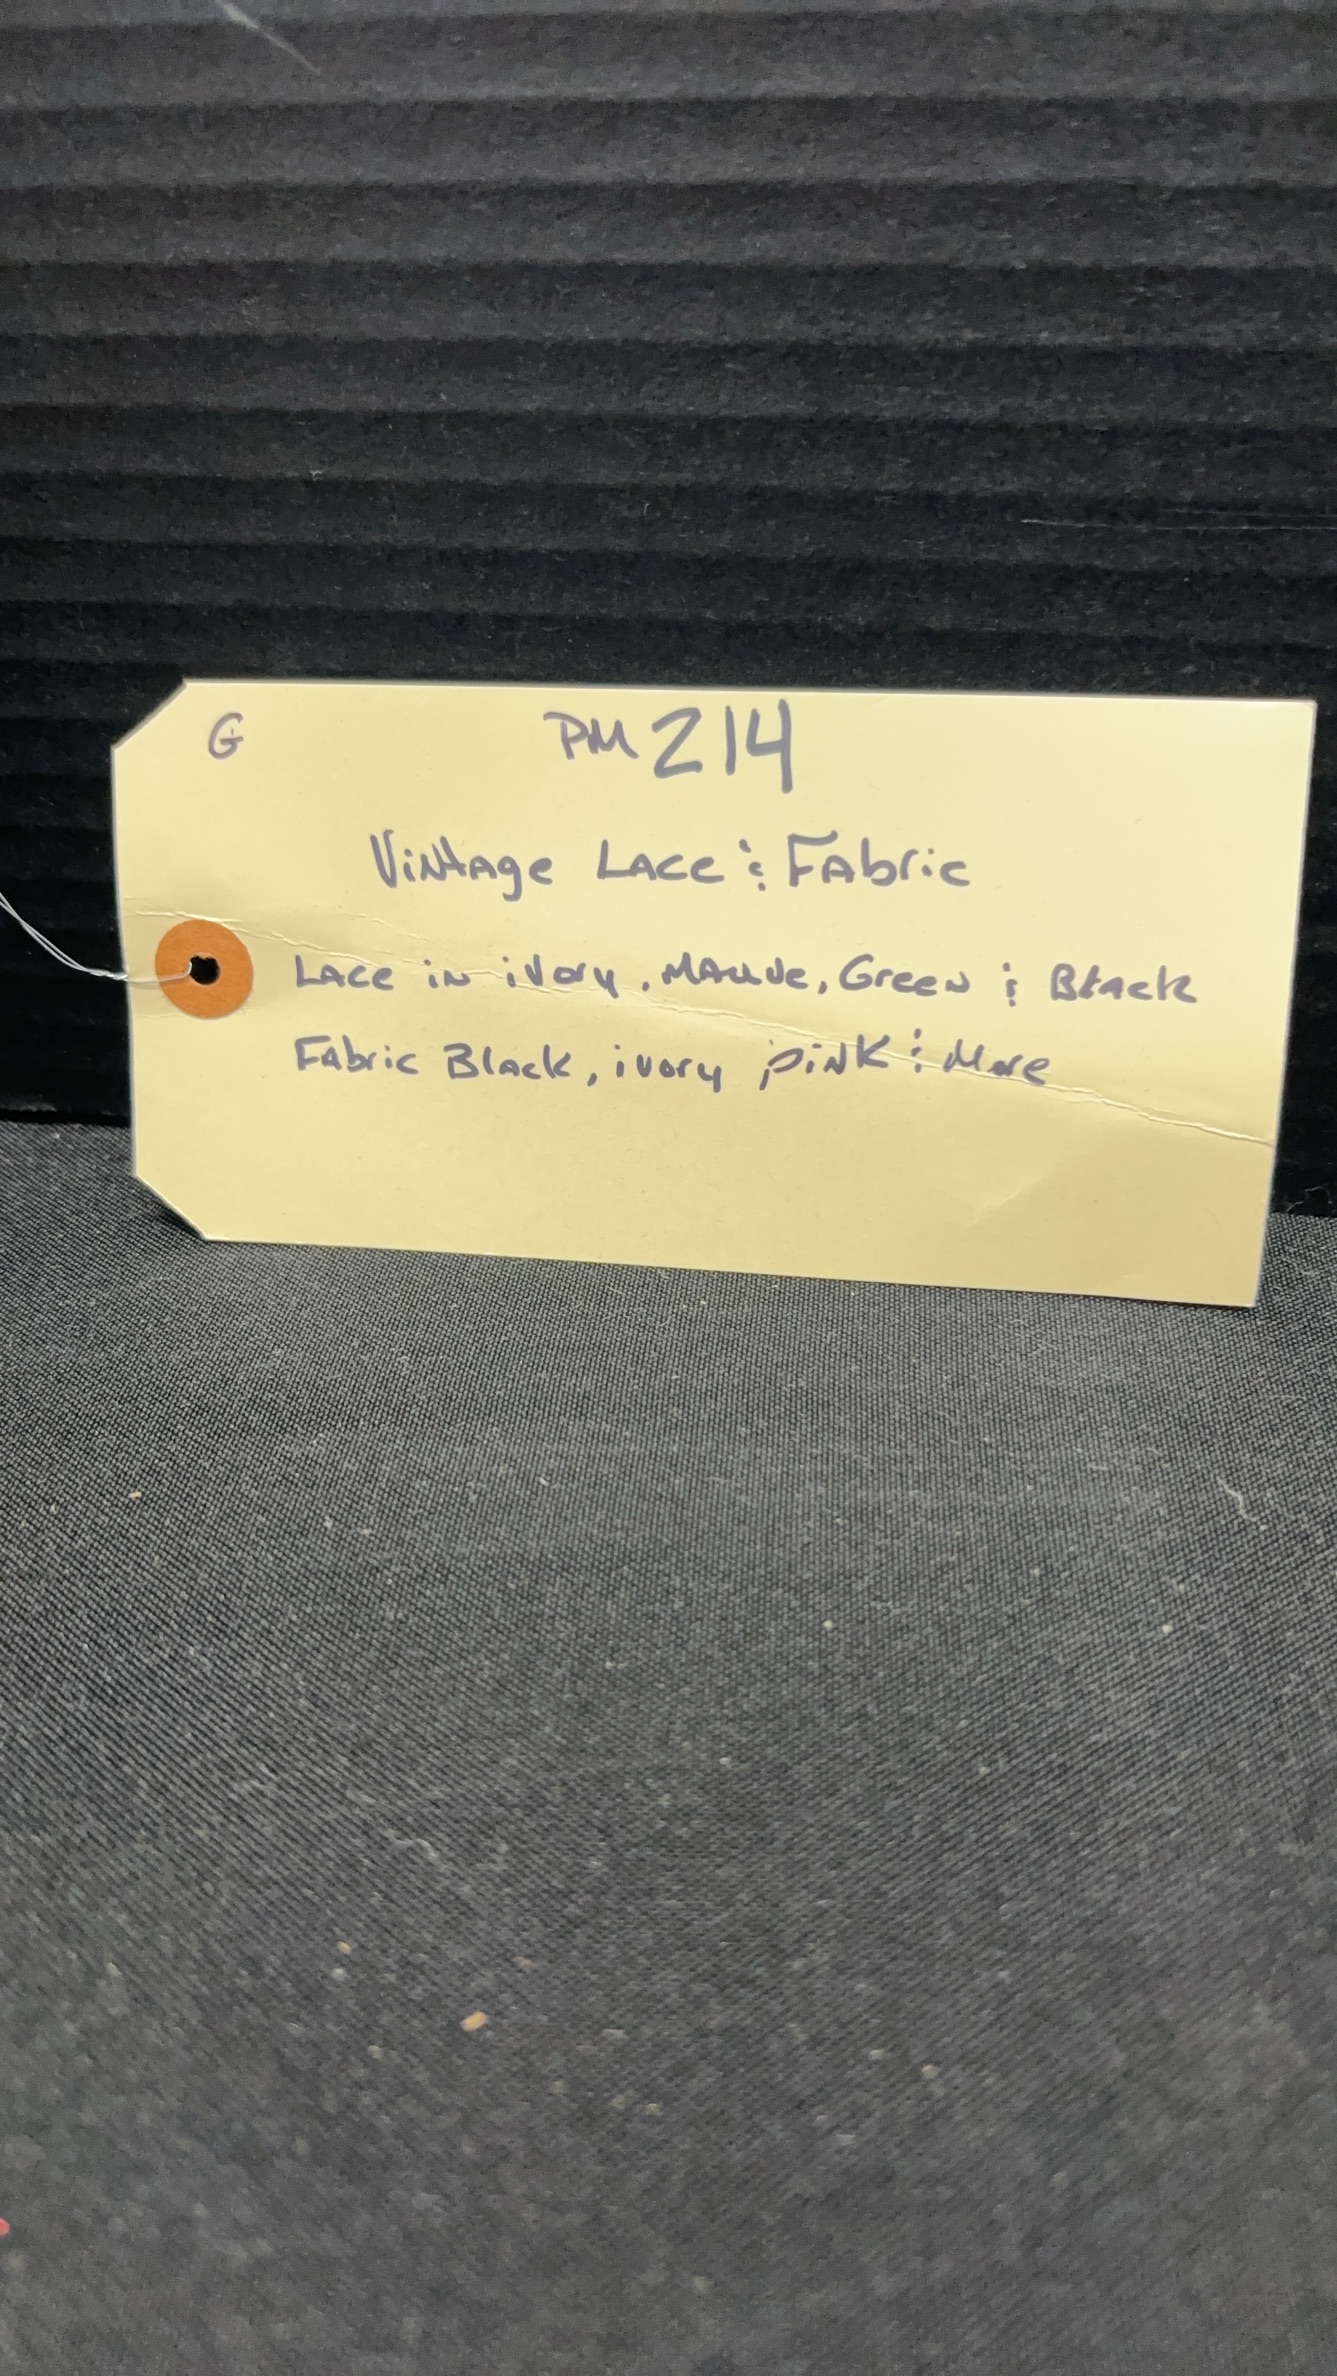 G PM 214
Vintage Lace & Fabric
Lace in ivory, Mauve, Green & Black
Fabric Black, ivory pink & More